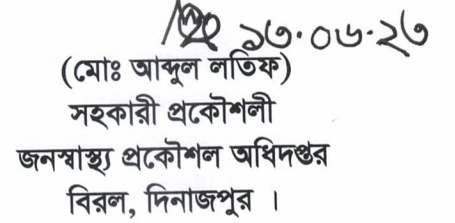 ১৩.০৬.২৩
(মোঃ আব্দুল লতিফ)
সহকারী প্রকৌশলী
জনস্বাস্থ্য প্রকৌশল অধিদপ্তর
বিরল, দিনাজপুর ।